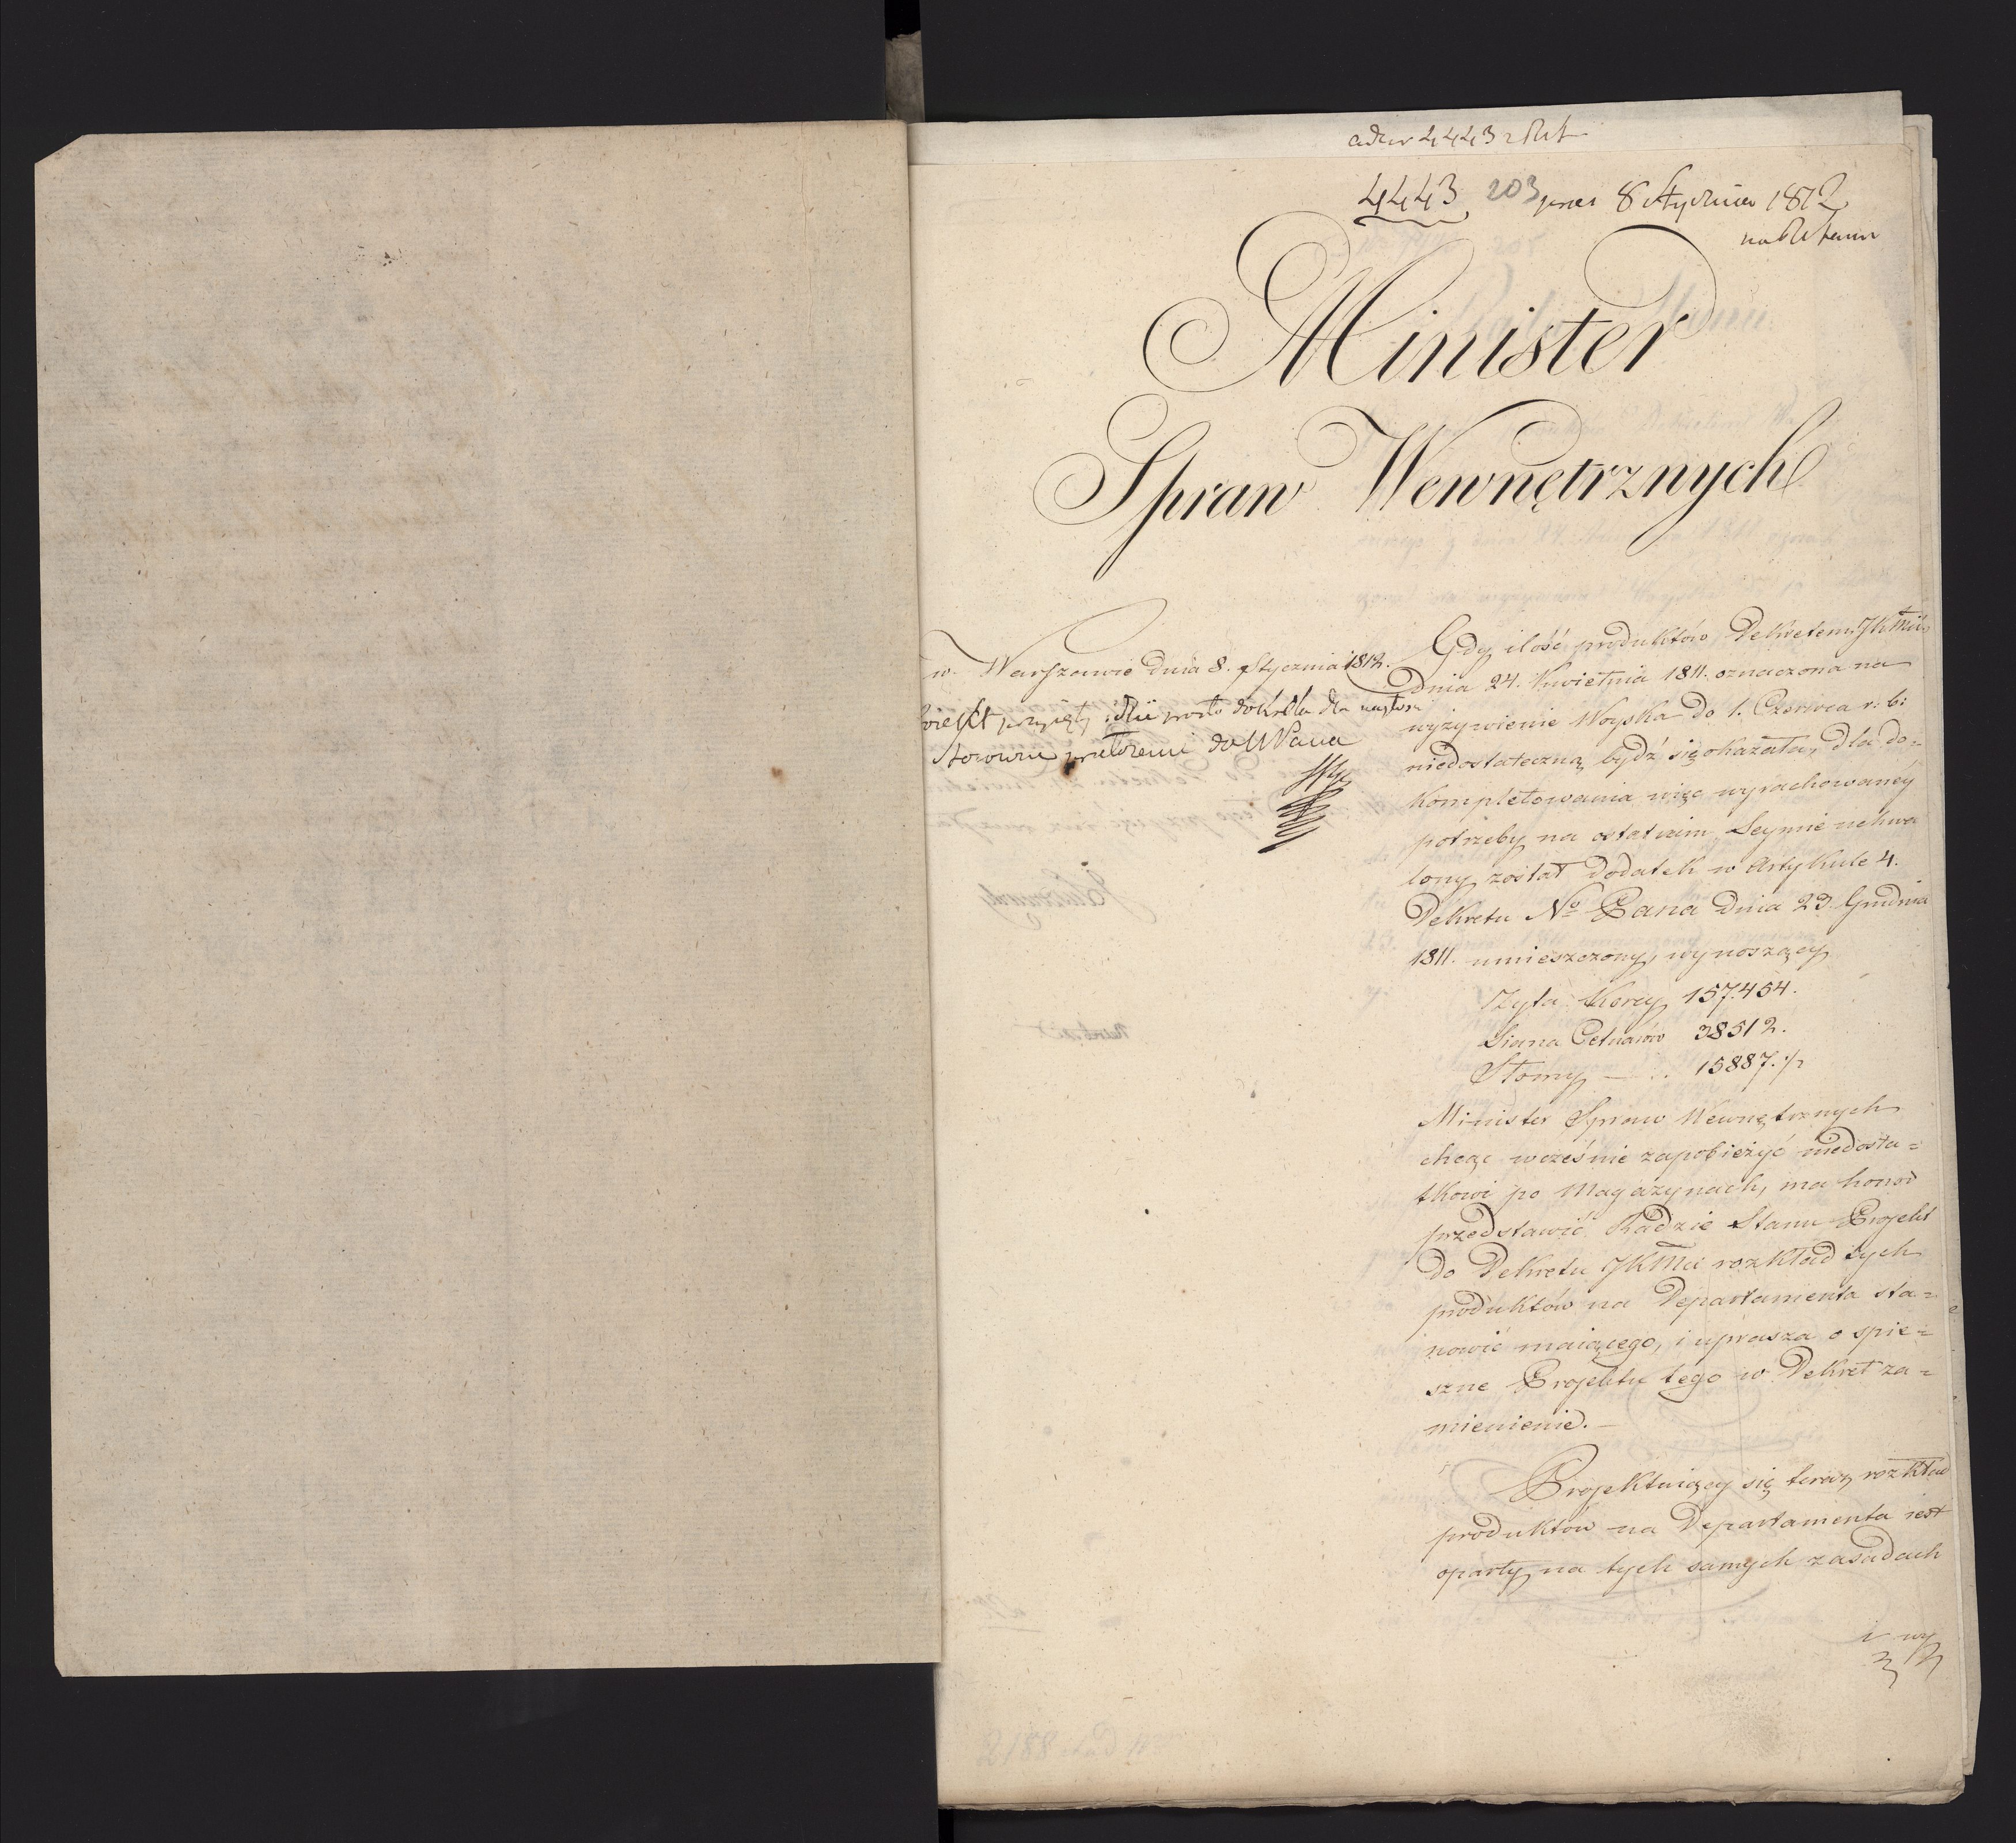 4443 203 pras 8 Stycznia 1812
Minister
Spraw Wewnętrznych
w Warszawie dnia 8. Stycznia 1812.
Gdy ilość produktów Dekretem JKMci
Dnia 24. Kwietnia 1811. oznaczona na
wyżywienie Woyska do 1. Czerwca r: b:
niedostateczną bydź się okazała, dla do=
kompletowania więc wyrachowaney
potrzeby na ostatnim Seymie uchwa
lony został dodatek w Artykule 4.
Dekretu No Pana Dnia 23. Grudnia
1811. umieszczony, wynoszący
Żyta Korcy 157.454.
Siana Cetnarów 38512.
Słomy — . . 15887.
Minister Spraw Wewnętrznych
chcąc wcześnie zapobieżyć niedosta=
tkowi po Magazynach, ma honor
przedstawić Radzie Stanu Projekt
do Dekretu JKMci rozkład tych
produktów na Departamenta sta=
nowić maiącego, i uprasza o spie=
szne Projektu tego w Dekret za=
mienienie. —
Projektuiący się teraz rozkład
produktów na Departamenta iest
oparty na tych samych zasadach